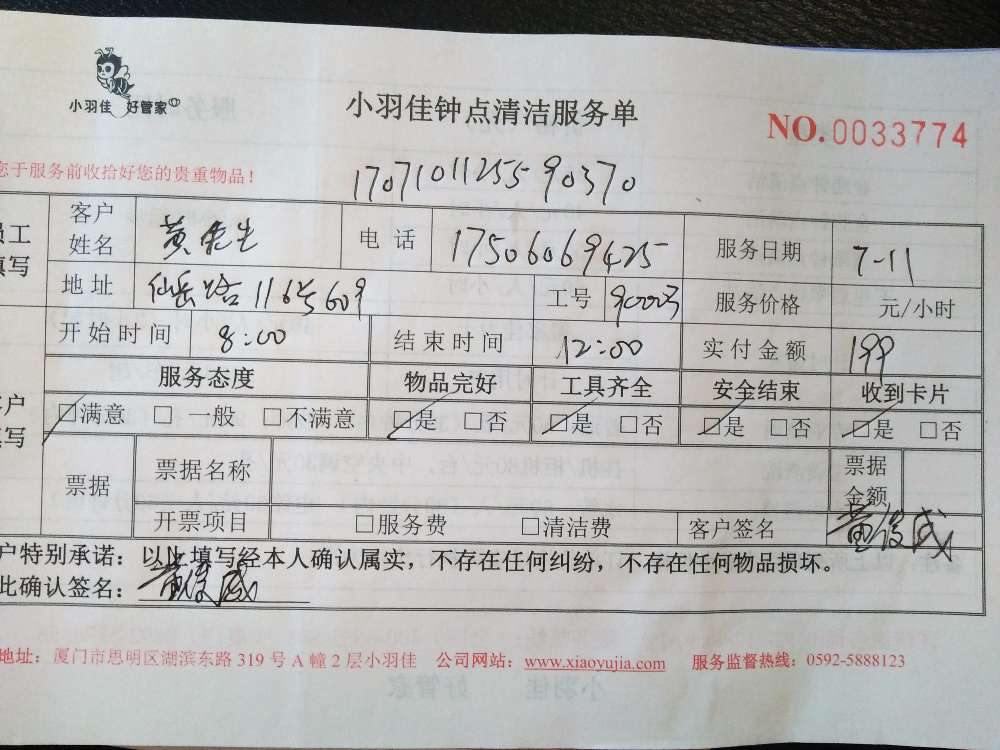 小羽佳 好管家
小羽佳钟点清洁服务单
NO.0033774
您于服务前收拾好您的贵重物品！
1707101125590370
员工填写
客户姓名 黄先生 电话 17506069425 服务日期 7-11
地址 仙岳路116号609 工号 90003 服务价格 元/小时
开始时间 8:00 结束时间 12:00 实付金额 199
客户填写
服务态度 物品完好 工具齐全 安全结束 收到卡片
□满意 □一般 □不满意 □是 □否 □是 □否 □是 □否 □是 □否
票据 票据名称 票据金额
开票项目 □服务费 □清洁费 客户签名 黄俊威
户特别承诺：以上填写经本人确认属实，不存在任何纠纷，不存在任何物品损坏。
此确认签名：黄俊威
地址：厦门市思明区湖滨东路319号A幢2层小羽佳 公司网站：www.xiaoyujia.com 服务监督热线：0592-5888123